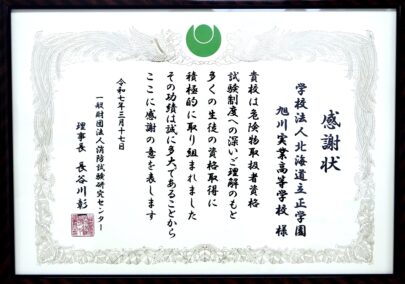 感謝状
学校法人北海道立正学園
旭川実業高等学校 様
貴校は危険物取扱者資格
試験制度への深いご理解のもと
多くの生徒の資格取得に
積極的に取り組まれました
その功績は誠に多大であることから
ここに感謝の意を表します
令和七年三月十七日
一般財団法人消防試験研究センター
理事長 長谷川彰一